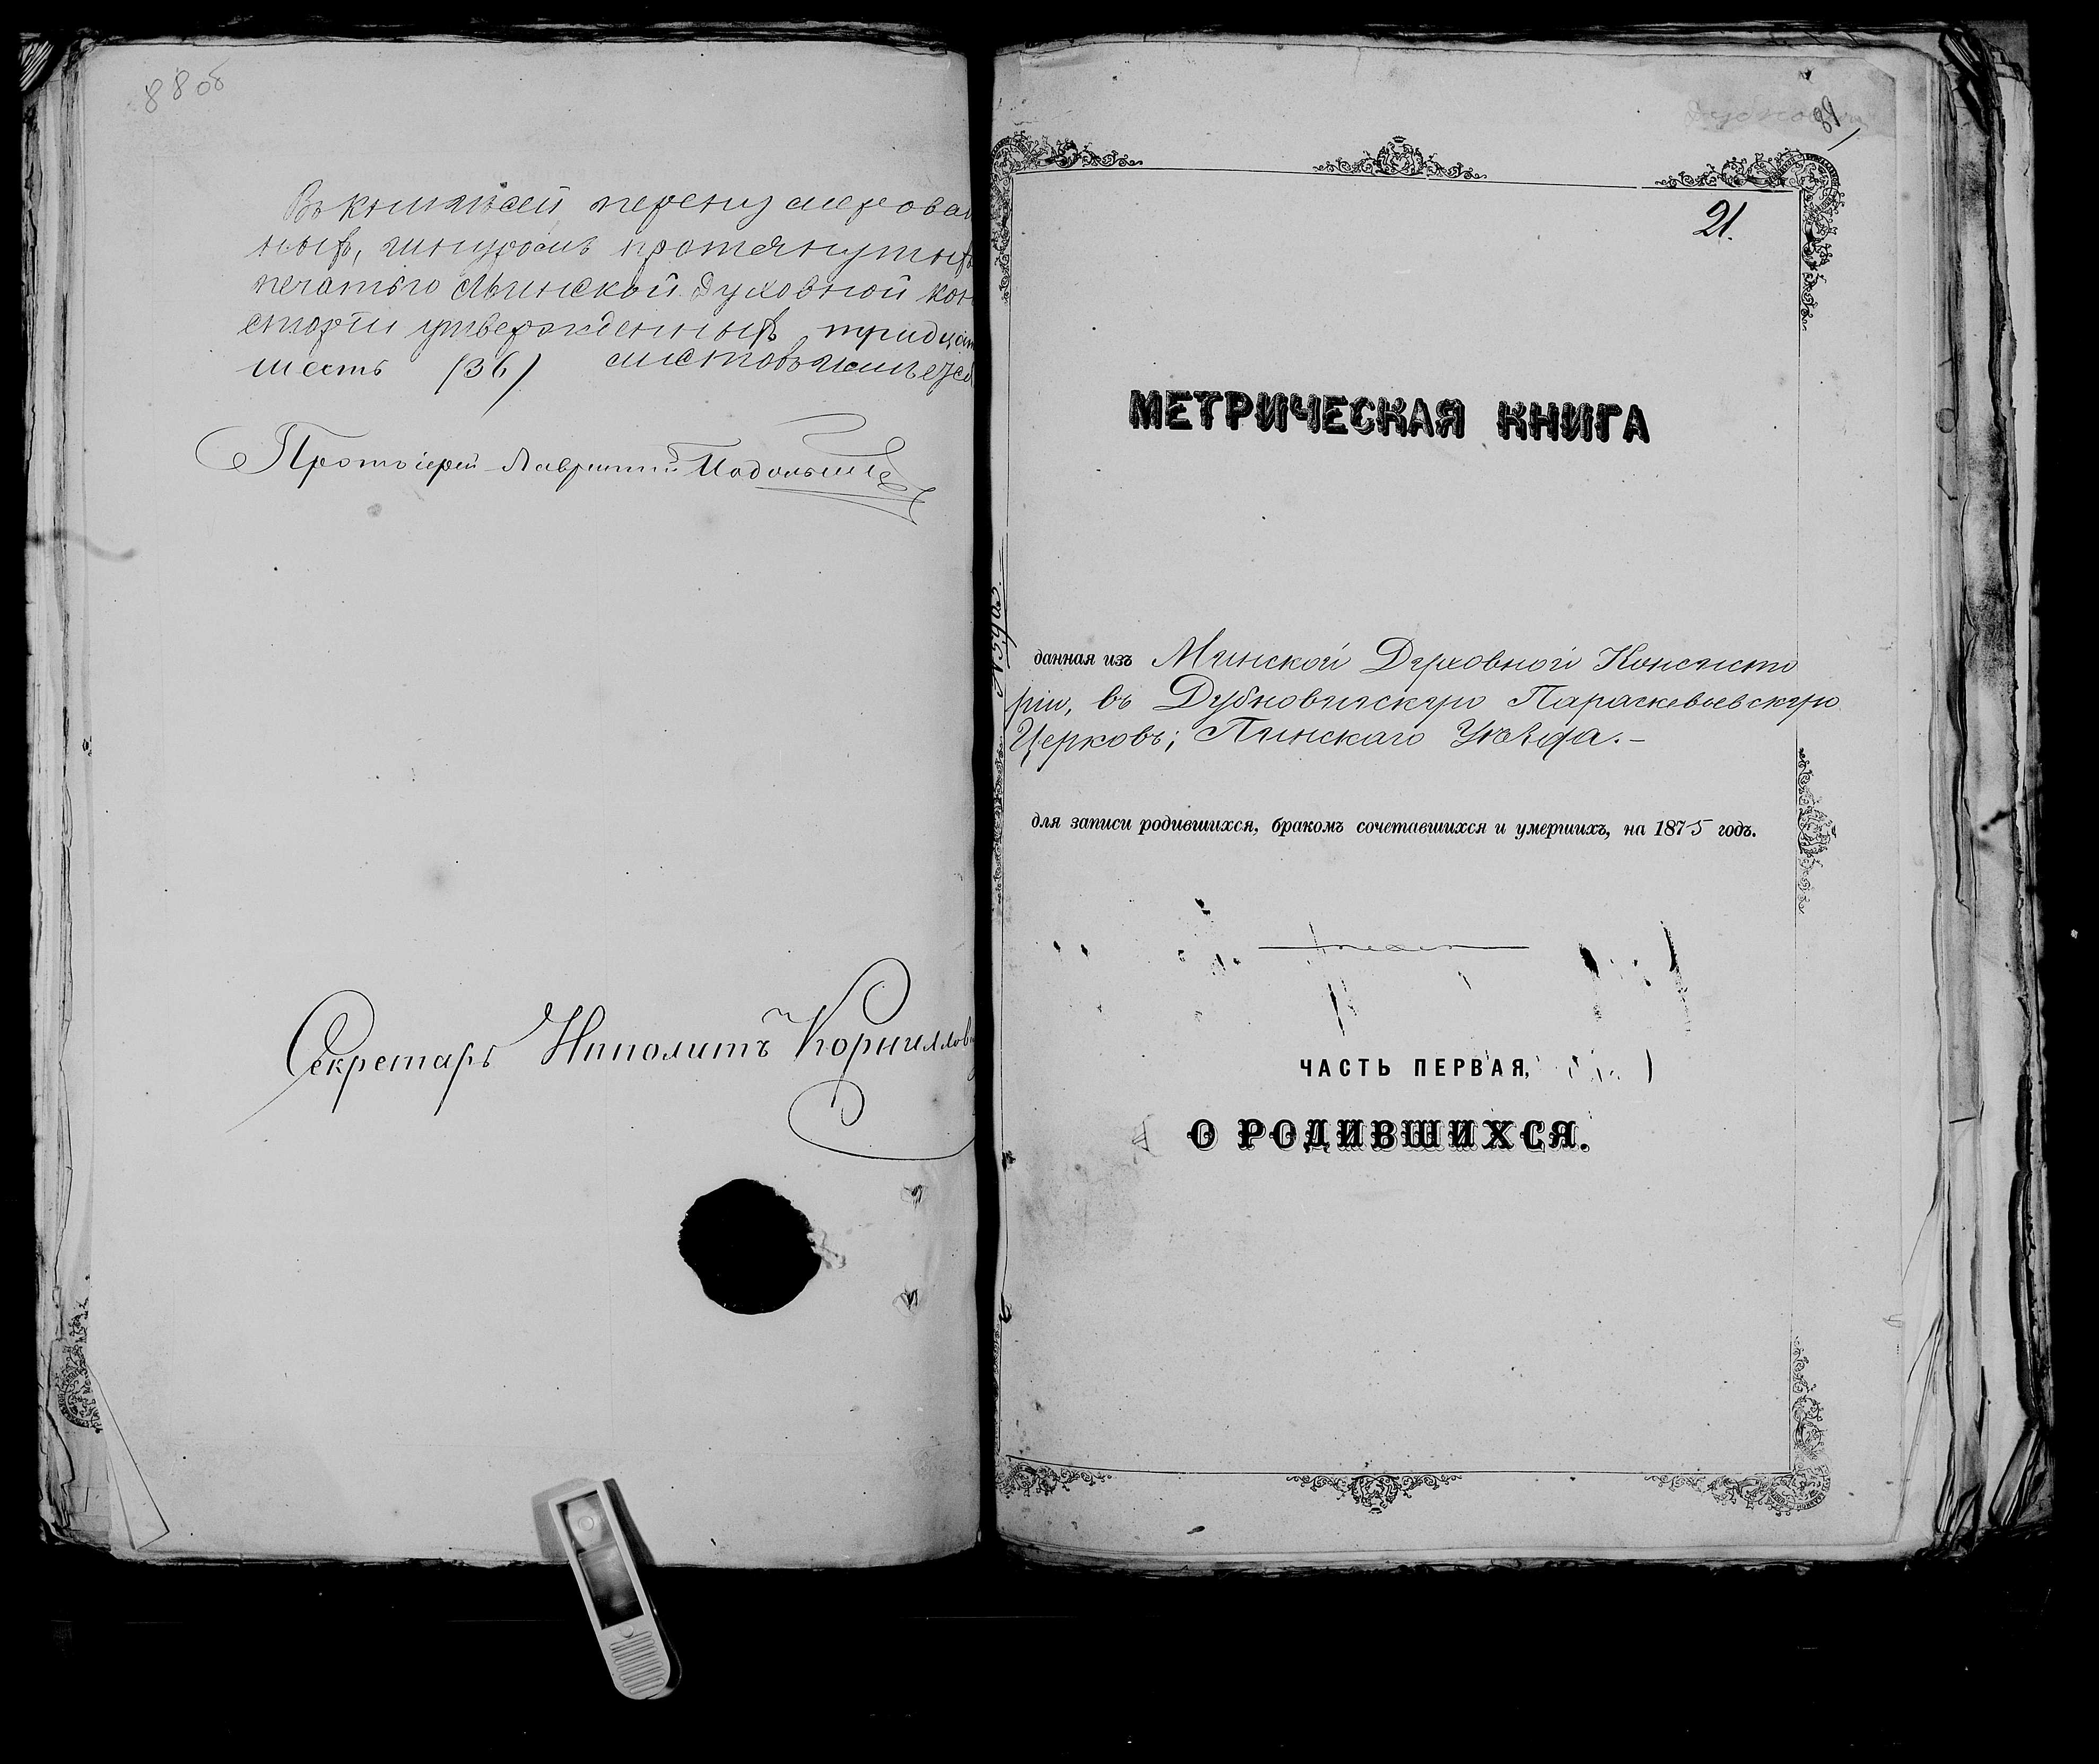 88 об
Въ книгѣ сей перенумерован
ныхъ, шнуромъ протянутыхъ
печатью Минской Духовной Кон
сторіи утвержденныхъ тридцать
шесть (36) листовъ
Протоіерей Лаврентій Подольскій
Секретарь Ипполитъ Корнилов
89
21.
МЕТРИЧЕСКАЯ КНИГА
данная изъ Минской Духовной Консисто
ріи, въ Дубновичскую Параскевіевскую
Церковь; Пинскаго Уѣзда.-
для записи родившихся, бракомъ сочетавшихся и умершихъ, на 1875 годъ.
ЧАСТЬ ПЕРВАЯ,
О РОДИВШИХСЯ.